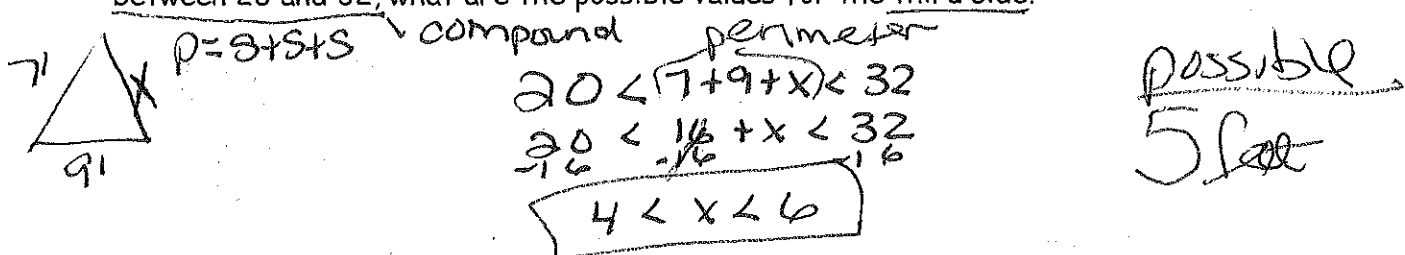 between 20 and 32, what are the possible values for the third side.
P=S+S+S compound perimeter
7'
x
9'
20 < 7+9+x < 32
20 < 16 + x < 32
-16 -16 -16
4 < x < 6
possible
5 feet